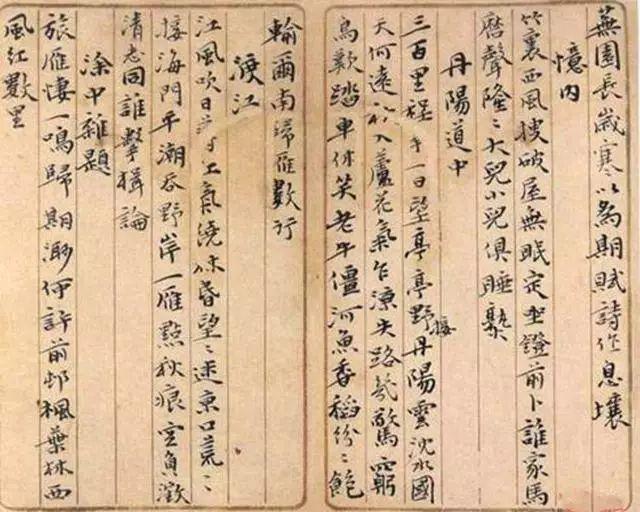 蕪園長歲寒以為期賦詩作息壤
憶內
竹裏西風搜破屋無眠定坐鐙前卜誰家馬
磨聲隆〻大兒小兒俱睡熟
丹陽道中
三百里程才一日望亭亭野接丹陽雲沈水國
天何遠秋入蘆花氣乍涼失路幾驚窮
鳥歎踏車休笑老牛僵河魚香稻紛〻飽
輸爾南歸雁數行
渡江
江風吹日薄江氣繞林昏望〻迷京口荒〻
接海門平潮吞野岸一雁點秋痕空負澂
清志同誰擊楫論
涂中雜題
旅雁悽一鳴歸期渺何許前邨楓葉林西
風紅數里